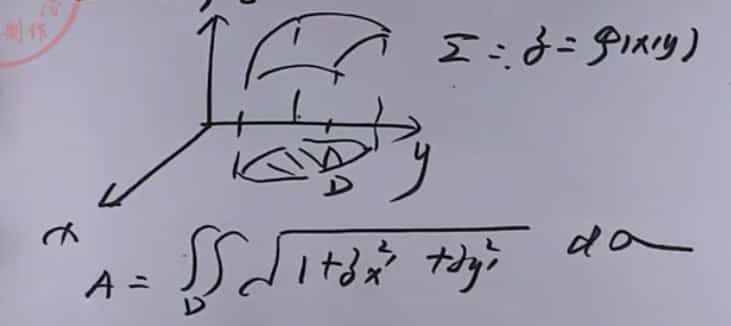 制作
Σ: z = φ(x,y)
y
D
x
A = ∬_D √(1 + z'ₓ² + z'ᵧ²) dσ